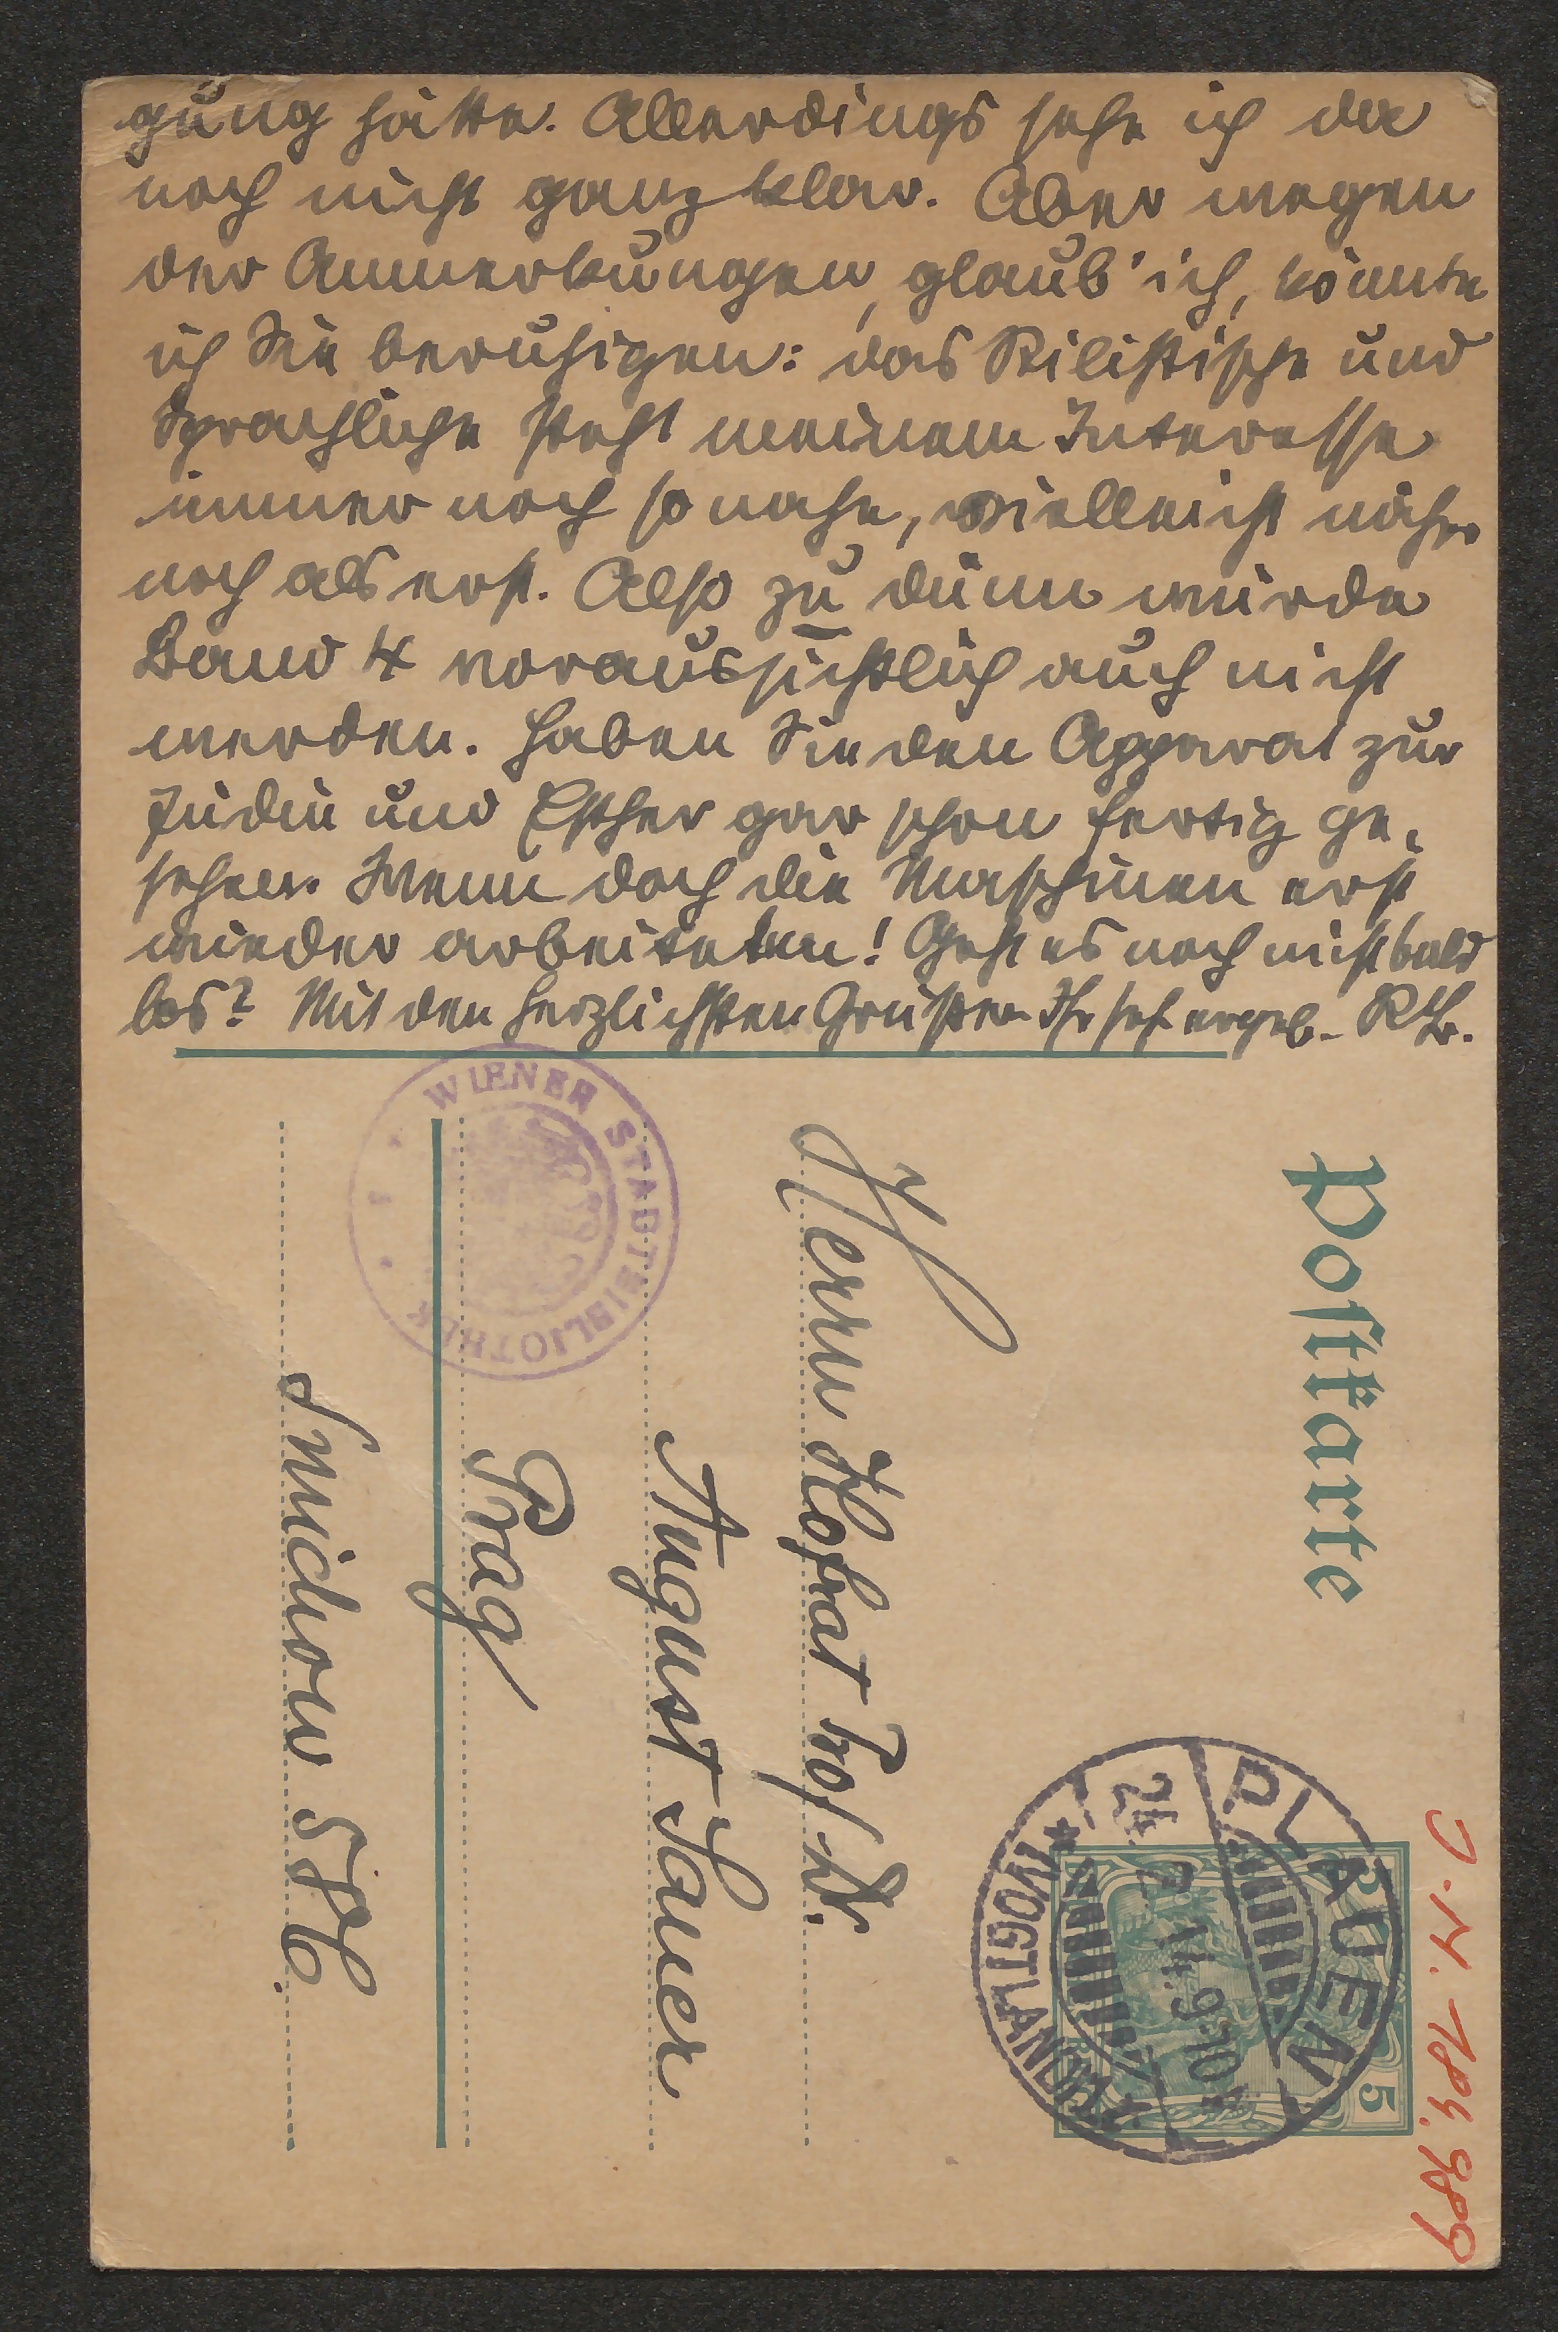 gung hätte. Allerdings sehe ich da
noch nicht ganz klar. Aber wegen
der Anmerkungen, glaub' ich, könnte
ich Sie beruhigen: das Stilistische und
Sprachliche steht meinem Interesse
immer noch so nahe, vielleicht näher
noch als erst. Also zu dünn würde
Band 4 voraussichtlich auch nicht
werden. Haben Sie den Apparat zur
Jüdin und Esther gar schon fertig ge-
sehen. Wenn doch die Maschinen erst
wieder arbeiteten! Geht es noch nicht bald
los? Mit den herzlichsten Grüßen Ihr sehr ergeb.
WIENER STADTBIBLIOTHEK
Postkarte
Herrn Hofrat Prof. Dr.
August Sauer
Prag
Smichow 586
PLAUEN
24. 2. 14. 9-10
*(VOGTLAND)*
5
J. N. 184.989